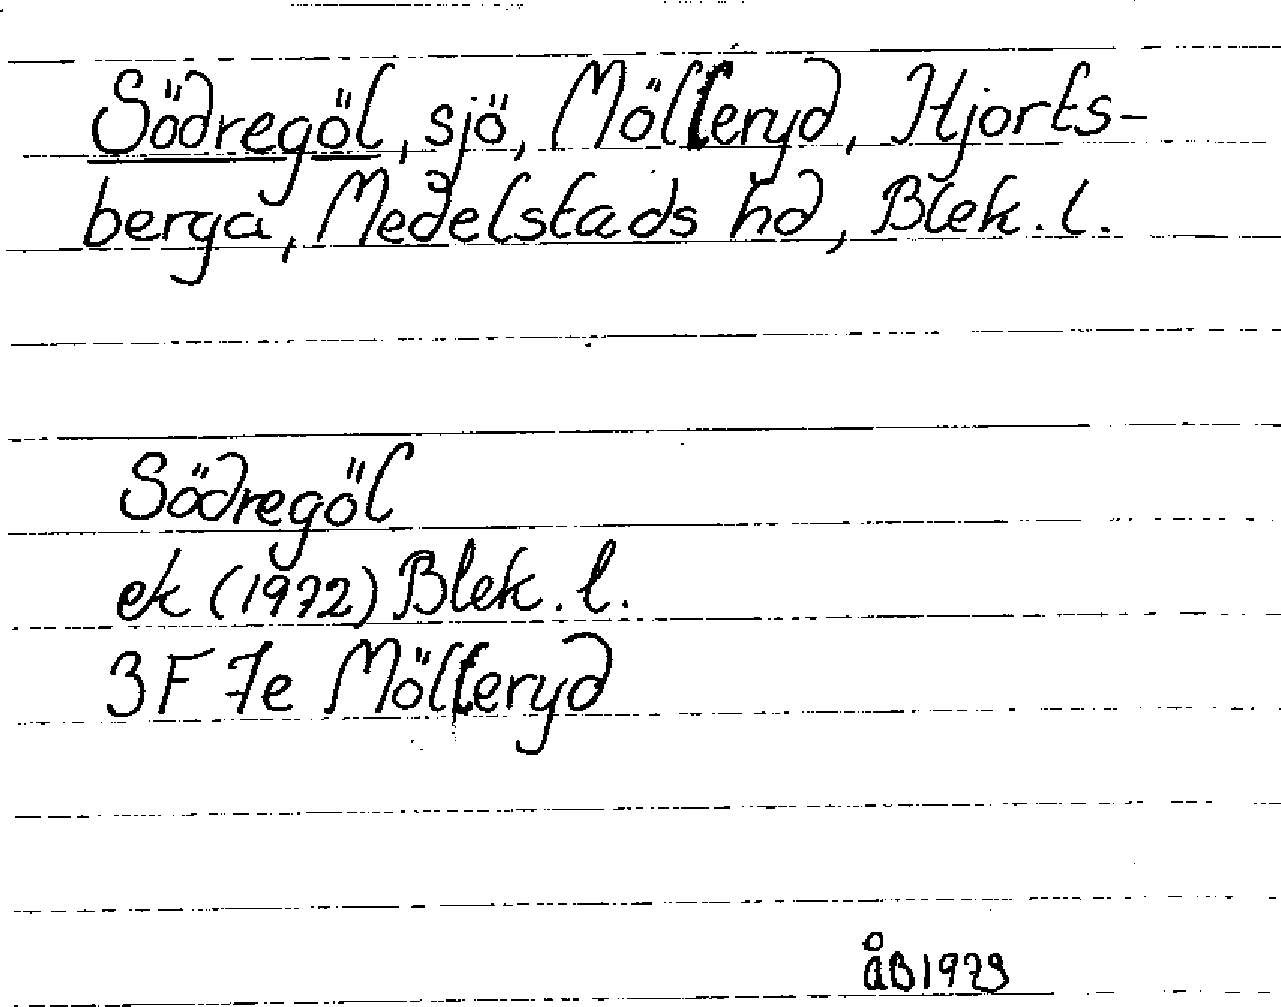 Södregöl, sjö, Mölleryd, Hjorts-
berga, Medelstads hd, Blek. l.
Södregöl
ek (1972) Blek. l.
3F 7e Mölleryd
åB 1979